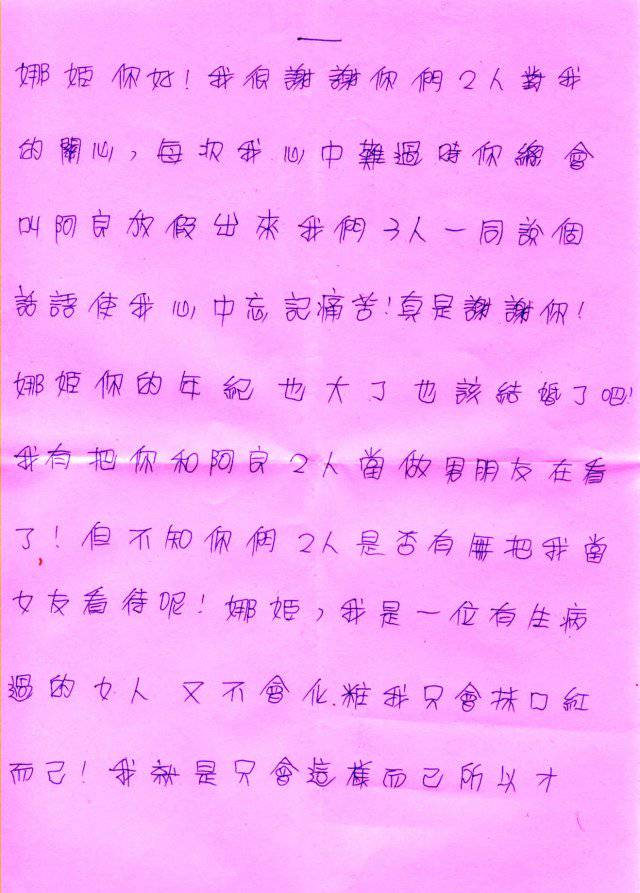 一
娜姫你好!我很謝謝你們2人對我
的關心,每次我心中難過時你總會
叫阿良放假出來我們3人一同說個
話語使我心中忘記痛苦!真是謝謝你!
娜姫你的年紀也大了也該結婚了吧!
我有把你和阿良2人當做男朋友在看
了!但不知你個2人是否有無把我當
女友看待呢!娜姫,我是一位有生病
過的女人又不會化粧我只會抹口紅
而己!我就是只會這樣而己所以才